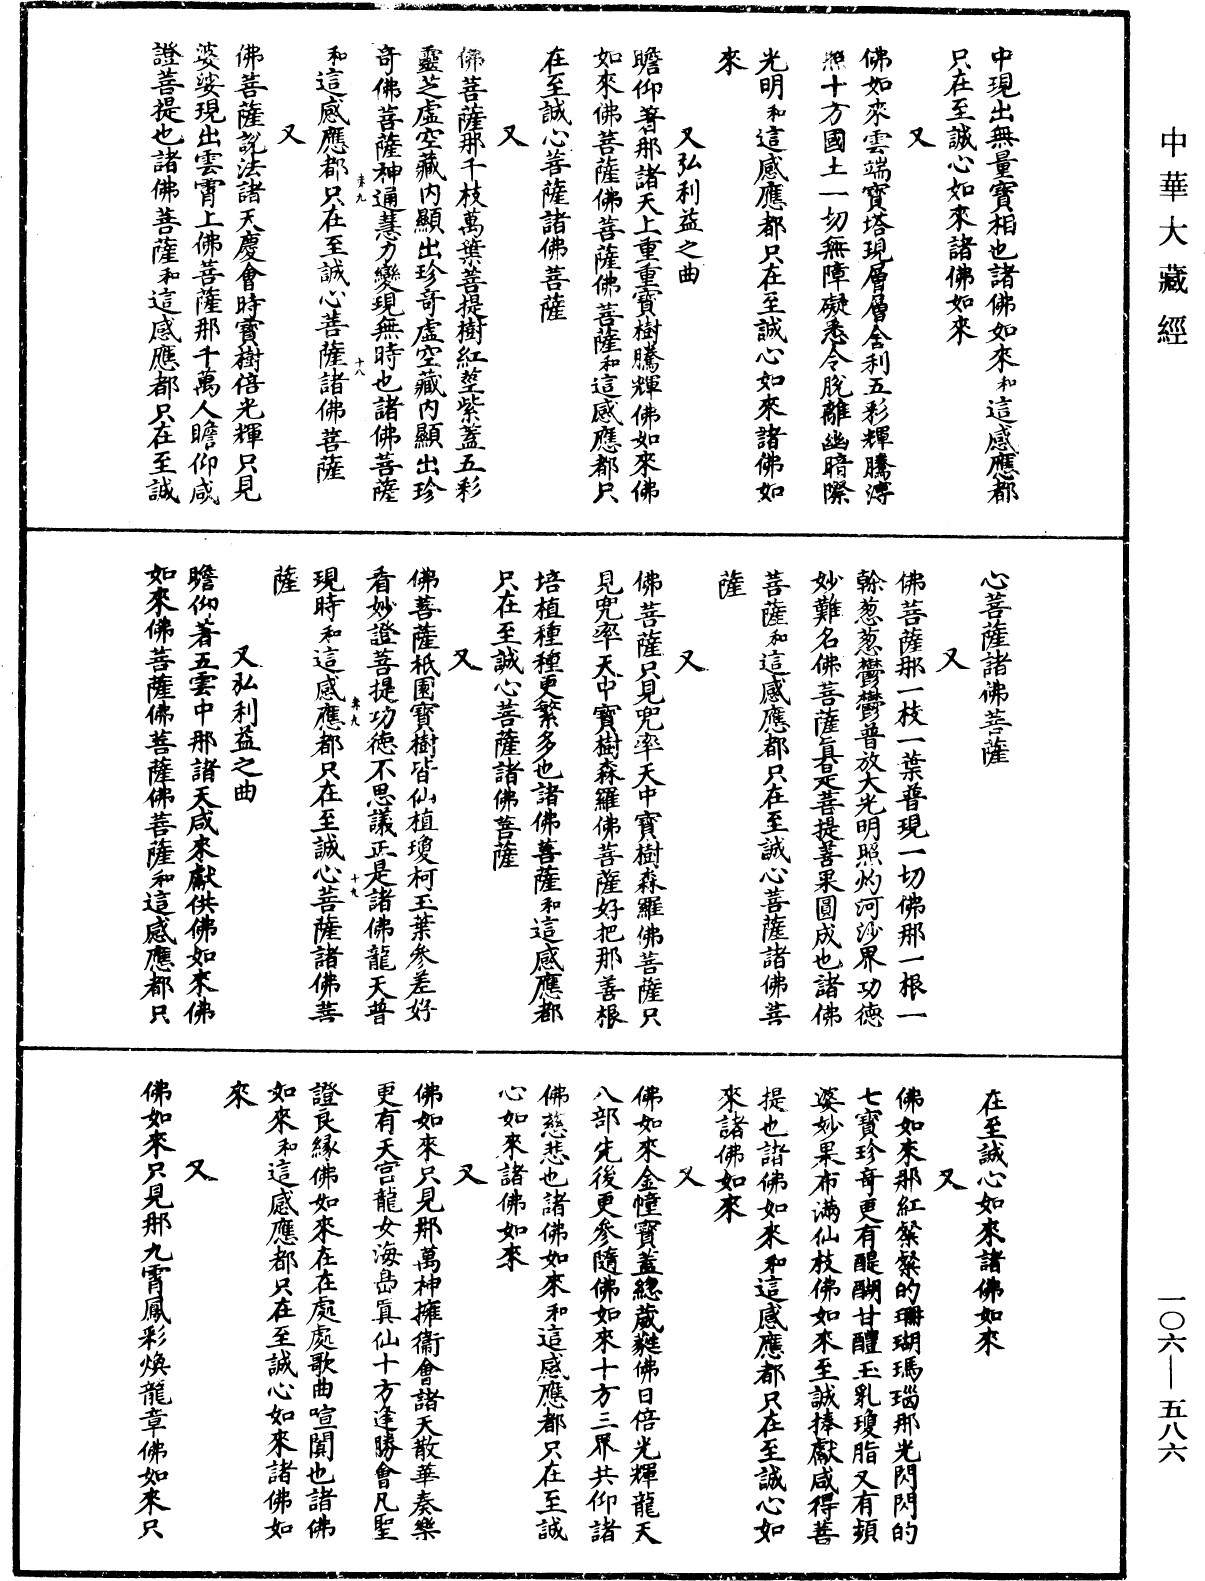 中華大藏經
一〇六—五八六
中現出無量寶相也諸佛如來和這感應都
只在至誠心如來諸佛如來
又
佛如來雲端寶塔現層層舍利五彩輝騰溥
照十方國土一切無障礙悉令脫離幽暗際
光明和這感應都只在至誠心如來諸佛如
來
又弘利益之曲
瞻仰著那諸天上重重寶樹騰輝佛如來佛
如來佛菩薩佛菩薩佛菩薩和這感應都只
在至誠心菩薩諸佛菩薩
又
佛菩薩那千枝萬葉菩提樹紅莖紫蓋五彩
靈芝虛空藏內顯出珍奇虛空藏內顯出珍
奇佛菩薩神通慧力變現無時也諸佛菩薩
和這感應都只在至誠心菩薩諸佛菩薩
又
佛菩薩說法諸天慶會時寶樹倍光輝只見
婆娑現出雲霄上佛菩薩那千萬人瞻仰咸
證菩提也諸佛菩薩和這感應都只在至誠
心菩薩諸佛菩薩
又
佛菩薩那一枝一葉普現一切佛那一根一
榦蔥蔥鬱鬱普放大光明照灼河沙界功德
妙難名佛菩薩眞是菩提善果圓成也諸佛
菩薩和這感應都只在至誠心菩薩諸佛菩
薩
又
佛菩薩只見兜率天中寶樹森羅佛菩薩只
見兜率天中寶樹森羅佛菩薩好把那善根
培植種種更繁多也諸佛菩薩和這感應都
只在至誠心菩薩諸佛菩薩
又
佛菩薩祇園寶樹皆仙植瓊柯玉葉參差好
看妙證菩提功德不思議正是諸佛龍天普
現時和這感應都只在至誠心菩薩諸佛菩
薩
又弘利益之曲
瞻仰著五雲中那諸天咸來獻供佛如來佛
如來佛菩薩佛菩薩佛菩薩和這感應都只
在至誠心如來諸佛如來
又
佛如來那紅粲粲的珊瑚瑪瑙那光閃閃的
七寶珍奇更有醍醐甘醴玉乳瓊脂又有頻
婆妙果布滿仙枝佛如來至誠捧獻咸得菩
提也諸佛如來和這感應都只在至誠心如
來諸佛如來
又
佛如來金幢寶蓋總葳蕤佛日倍光輝龍天
八部先後更參隨佛如來十方三界共仰諸
佛慈悲也諸佛如來和這感應都只在至誠
心如來諸佛如來
又
佛如來只見那萬神擁衞會諸天散華奏樂
更有天宮龍女海島眞仙十方逢勝會凡聖
證良緣佛如來在在處處歌曲喧闐也諸佛
如來和這感應都只在至誠心如來諸佛如
來
又
佛如來只見那九霄鳳彩煥龍章佛如來只